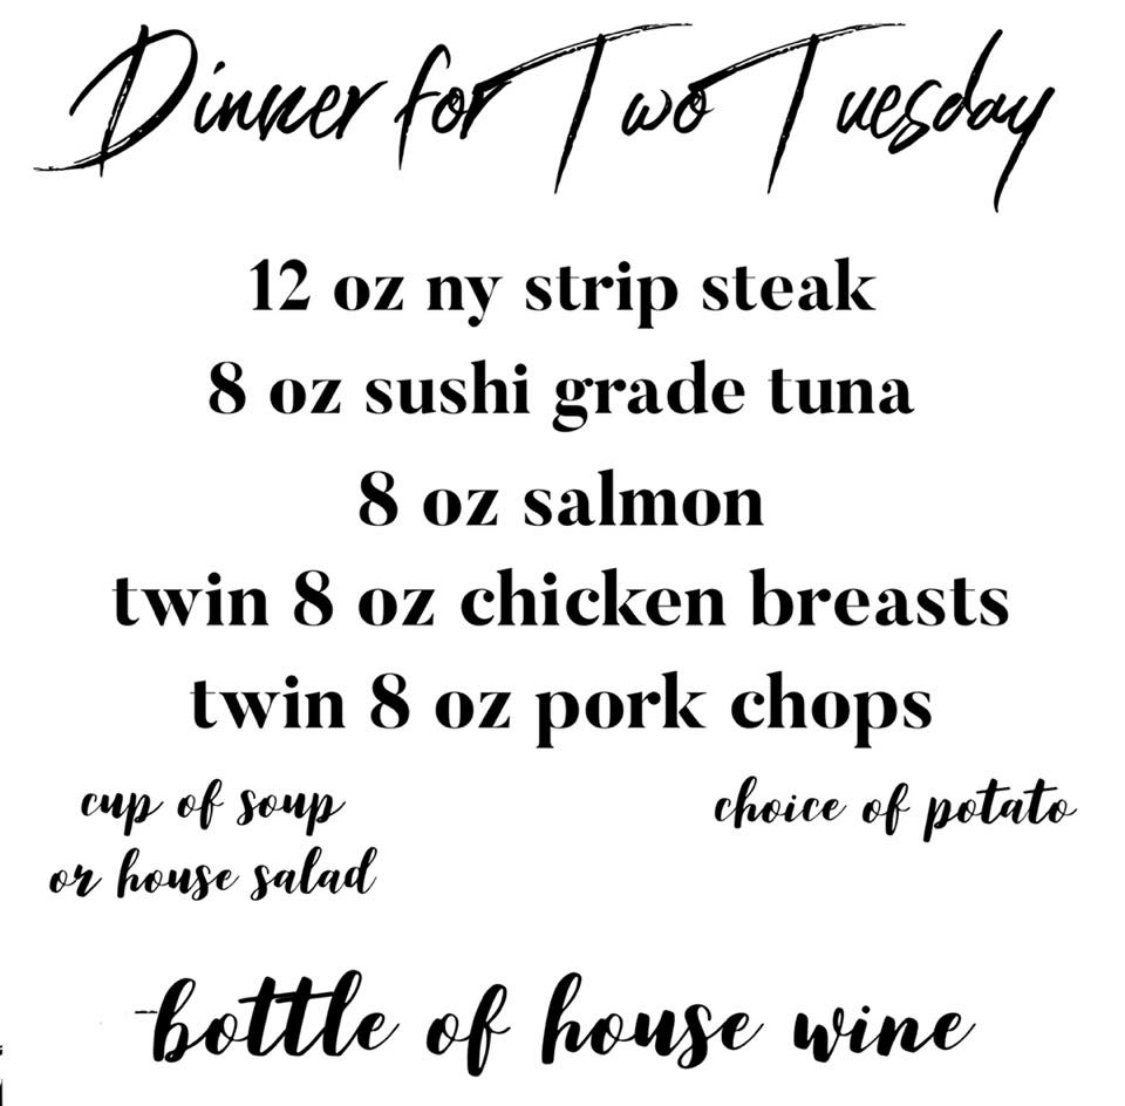 Dinner for Two Tuesday
12 oz ny strip steak
8 oz sushi grade tuna
8 oz salmon
twin 8 oz chicken breasts
twin 8 oz pork chops
cup of soup
or house salad
choice of potato
bottle of house wine